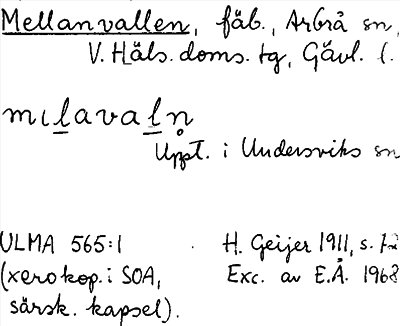 Mellanvallen, fäb., Arbrå sn,
V. Häls. doms. tg, Gävl. l.
mıl̲aval̲n̥
Uppt. i Undersviks sn
ULMA 565:1 H. Geijer 1911, s. 72
(xerokop. i SOA, Exc. av E.Å. 1968
särsk. kapsel).